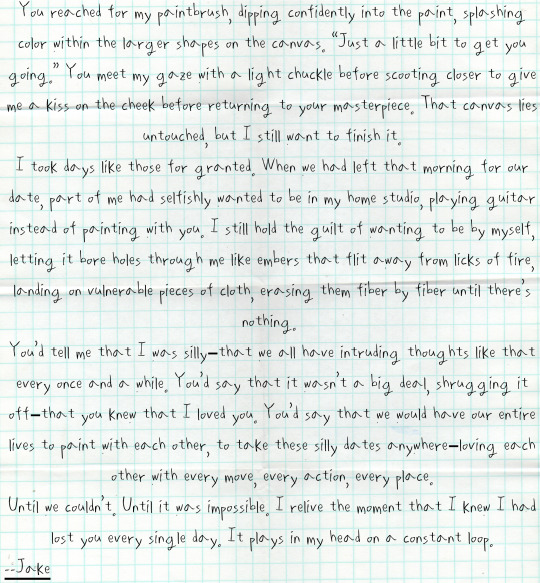 You reached for my paintbrush, dipping confidently into the paint, splashing
color within the larger shapes on the canvas. "Just a little bit to get you
going." You meet my gaze with a light chuckle before scooting closer to give
me a kiss on the cheek before returning to your masterpiece. That canvas lies
untouched, but I still want to finish it.
I took days like those for granted. When we had left that morning for our
date, part of me had selfishly wanted to be in my home studio, playing guitar
instead of painting with you. I still hold the guilt of wanting to be by myself,
letting it bore holes through me like embers that flit away from licks of fire,
landing on vulnerable pieces of cloth, erasing them fiber by fiber until there's
nothing.
You'd tell me that I was silly—that we all have intruding thoughts like that
every once and a while. You'd say that it wasn't a big deal, shrugging it
off—that you knew that I loved you. You'd say that we would have our entire
lives to paint with each other, to take these silly dates anywhere—loving each
other with every move, every action, every place.
Until we couldn't. Until it was impossible. I relive the moment that I knew I had
lost you every single day. It plays in my head on a constant loop.
--Jake